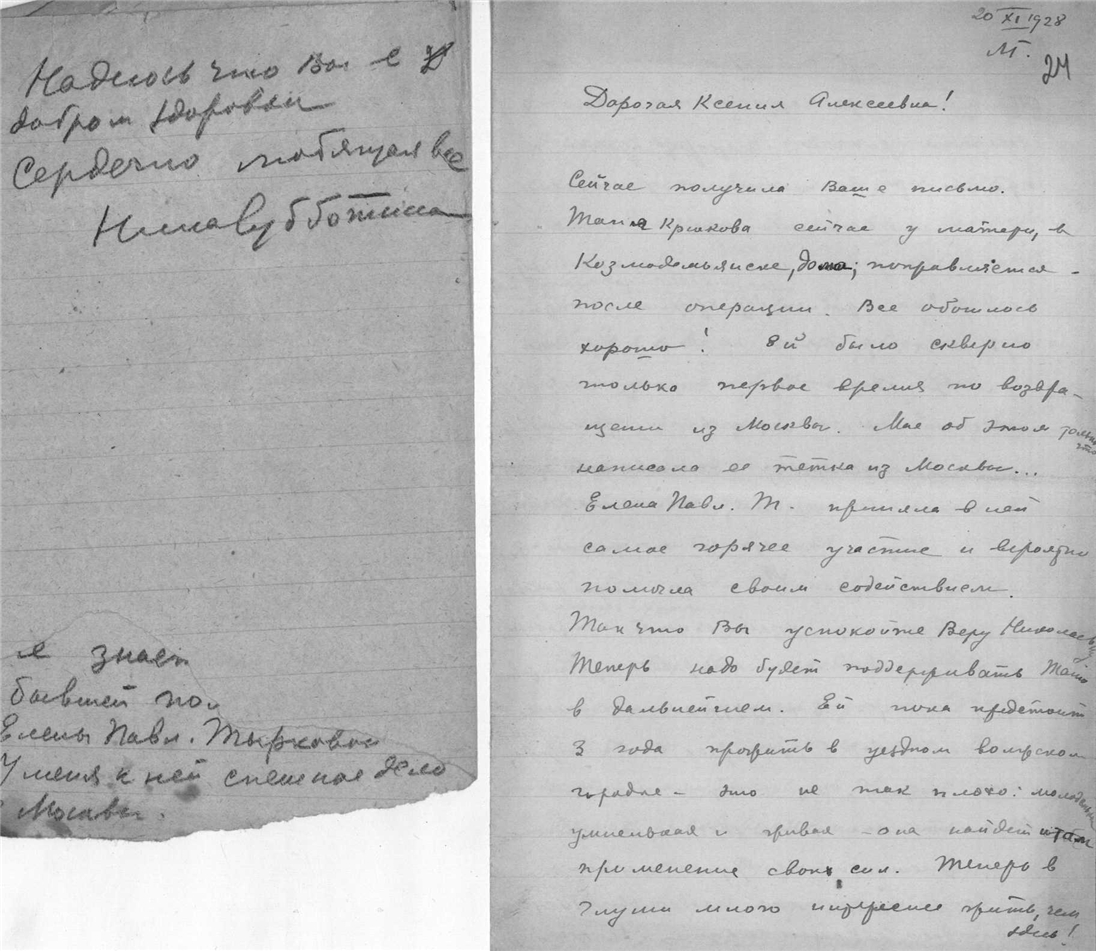 Надеюсь что Вы в
добром здоровьи
Сердечно любящая вас
Нина Субботина
я знает
бывшей по
Елены Павл. Тырковой
У меня к ней спешное дело
Москвы.
20 XI 1928
М.
24
Дорогая Ксения Алексеевна!
Сейчас получила Ваше письмо.
Таня Крюкова сейчас у матери, в
Козмодемьянске, дома; поправляется -
после операции. Все обошлось
хорошо! Ей было скверно
только первое время по возвра-
щении из Москвы. Мне об этом только что
написала ее тетка из Москвы...
Елена Павл. Т. приняла в ней
самое горячее участие и вероятно
помогла своим содействием.
Так что Вы успокойте Веру Николаевну
Теперь надо будет поддерживать Таню
в дальнейшем. Ей пока предстоит
3 года прожить в уездном волжском
городке - это не так плохо: молоденькая
умненькая и живая - она найдет и там
применение своих сил. Теперь в
глуши много интереснее жить, чем
здесь!